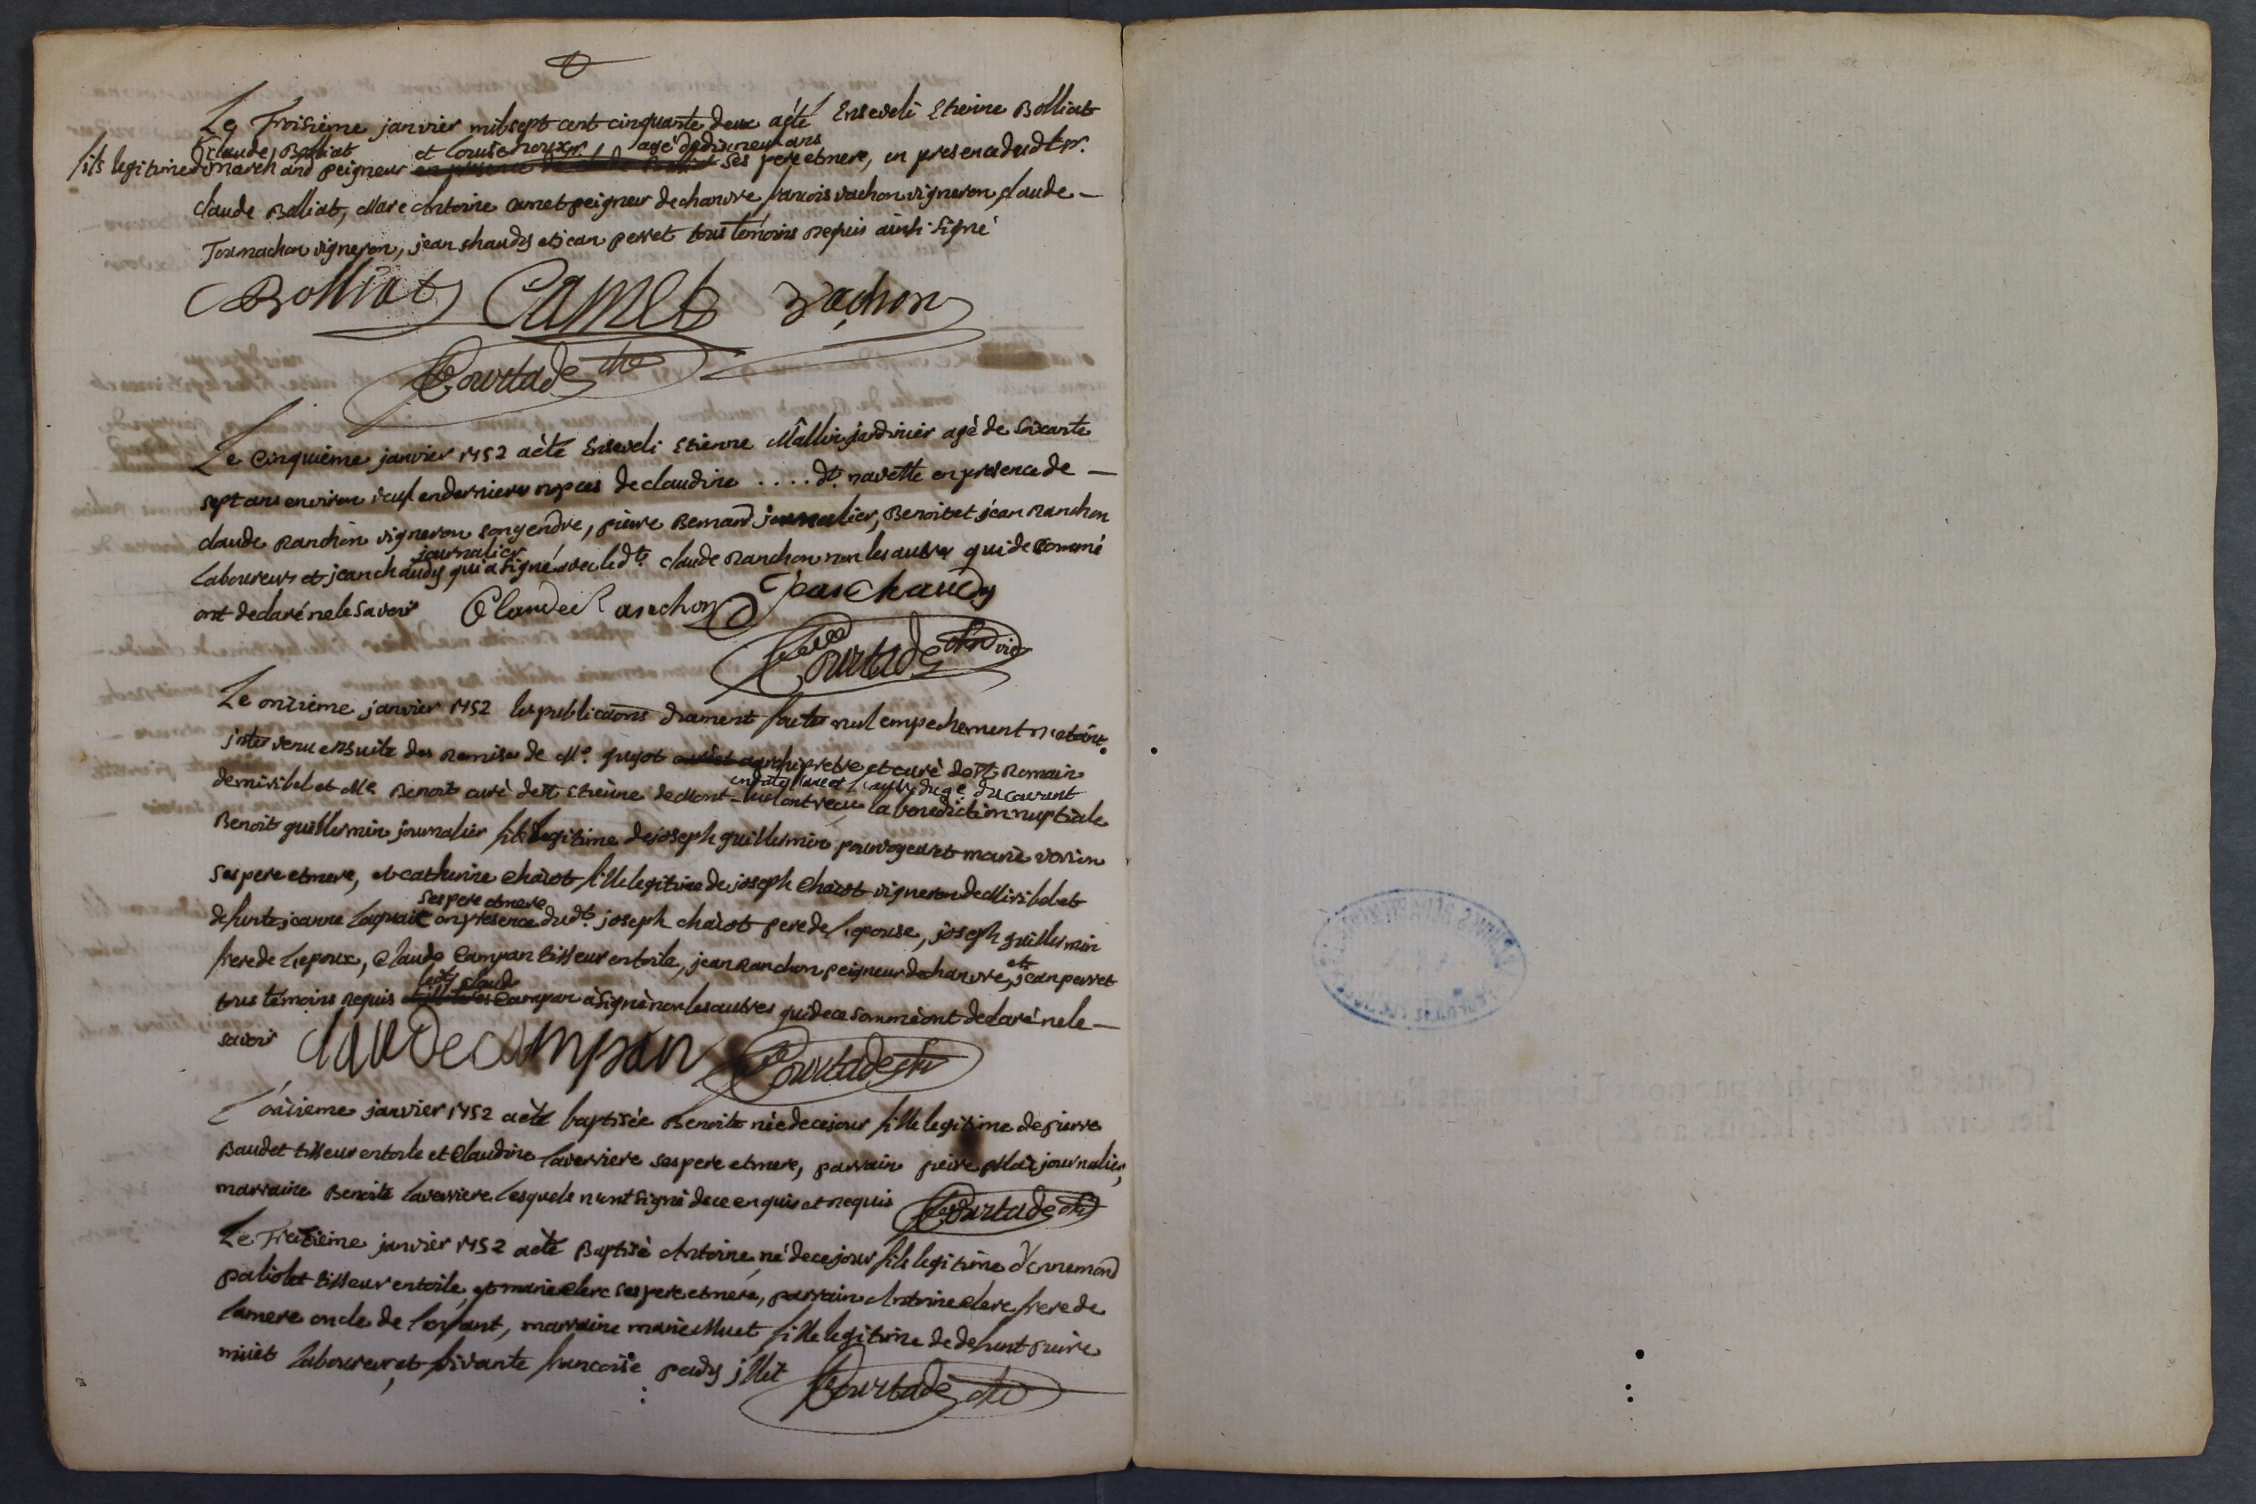 Le Troisieme janvier mil sept cent cinquante deux a été Enseveli Etienne Bolliat
fils legitime de Claude Bolliat marchand peigneur et Louise noux agé de dixneuf ans ses pere et mere, en presence dudt sr.
claude Bolliat, Marc Antoine Camet peigneur de chanvre francois vachon vigneron claude
Tournachon vigneron, jean chaudy et jean perret tous temoins requis ainsi signé
Bolliat Camet Vachon
Courtade
Le Cinquième janvier 1752 a èté Enseveli Etienne Mallin jardinier agé de Soixante
sept ans environ veuf en derniere nopces de claudine .... dt. navette en presence de
claude Ranchon vigneron son gendre, pierre Bernard journalier, Benoit et jean Ranchon
Laboureurs et jean chaudy journalier qui a signé avec led t. claude Ranchon non les autres qui de ce sommé
ont declaré ne le savoir Claude Ranchon Jean Chaudy
Courtade
Le onzieme janvier 1752 les publications duement faites nul empechement n'etant
intervenu ensuite des Remises de Me. guyot archiprêtre et curé de St Romain
de miribel et Me Benoit curé de St Etienne de Mont en datte du 9e. du courant ont reçu la benediction nuptiale
Benoit guillermin journalier fils legitime de joseph guillermin pourvoyeur et marie
ses pere et mere, et catherine chaîot fille legitime de joseph chaîot vigneron de Miribel et
defunte jeanne ses pere et mere en presence dudt. joseph chaîot pere de l'epouse, joseph guillermin
frere de l'epoux, claude Campan tisseur en toile, jean Ranchon peigneur de chanvre, et jean perret
tous temoins requis ledt claude Campan a signé non les autres qui de ce sommé ont declaré ne le
savoir claude campan Courtade
L'onzieme janvier 1752 a été baptisée Benoite née de ce jour fille legitime de pierre
Baudet tisseur en toile et Claudine Laverriere ses pere et mere, parrain peire journalier,
marraine Benoite Laverriere lesquels n'ont signé de ce enquis et requis Courtade
Le Treizieme janvier 1752 a èté Baptisé Antoine, né de ce jour fils legitime d'Ennemond
paliolet tisseur en toile, et marie clerc ses pere et mere, parrain Antoine clerc frere de
la mere oncle de l'enfant, marraine marie Muet fille legitime de defunt pierre
müet Laboureur, et vivante francoise Courtade